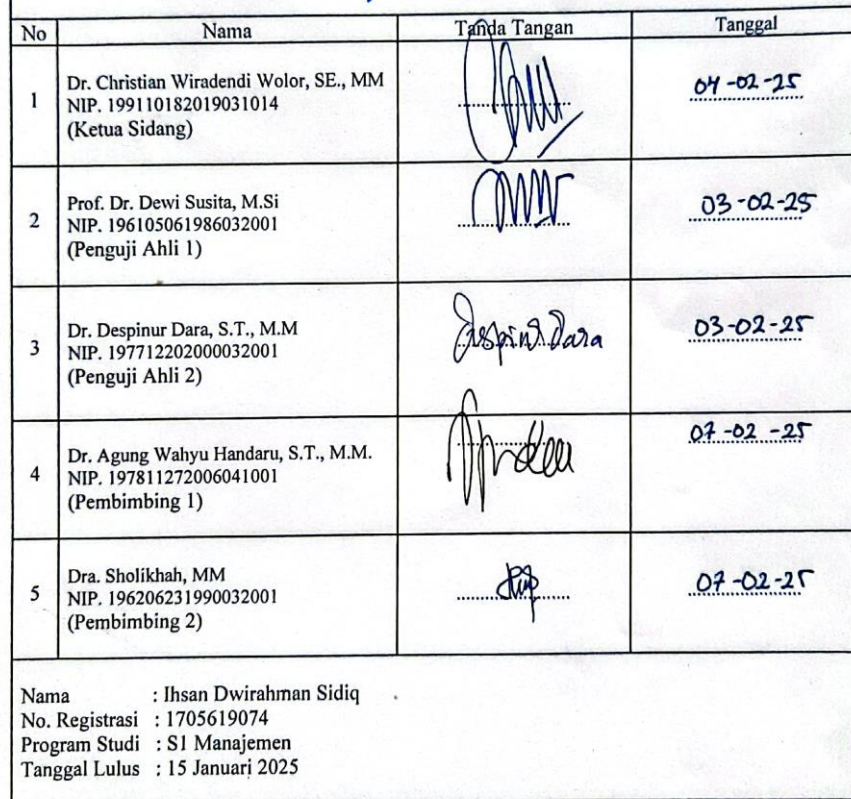 No Nama Tanda Tangan Tanggal
1 Dr. Christian Wiradendi Wolor, SE., MM
NIP. 199110182019031014
(Ketua Sidang)
04-02-25
2 Prof. Dr. Dewi Susita, M.Si
NIP. 196105061986032001
(Penguji Ahli 1)
03-02-25
3 Dr. Despinur Dara, S.T., M.M
NIP. 197712202000032001
(Penguji Ahli 2)
Despinur Dara
03-02-25
4 Dr. Agung Wahyu Handaru, S.T., M.M.
NIP. 197811272006041001
(Pembimbing 1)
07-02-25
5 Dra. Sholikhah, MM
NIP. 196206231990032001
(Pembimbing 2)
07-02-25
Nama : Ihsan Dwirahman Sidiq
No. Registrasi : 1705619074
Program Studi : S1 Manajemen
Tanggal Lulus : 15 Januari 2025